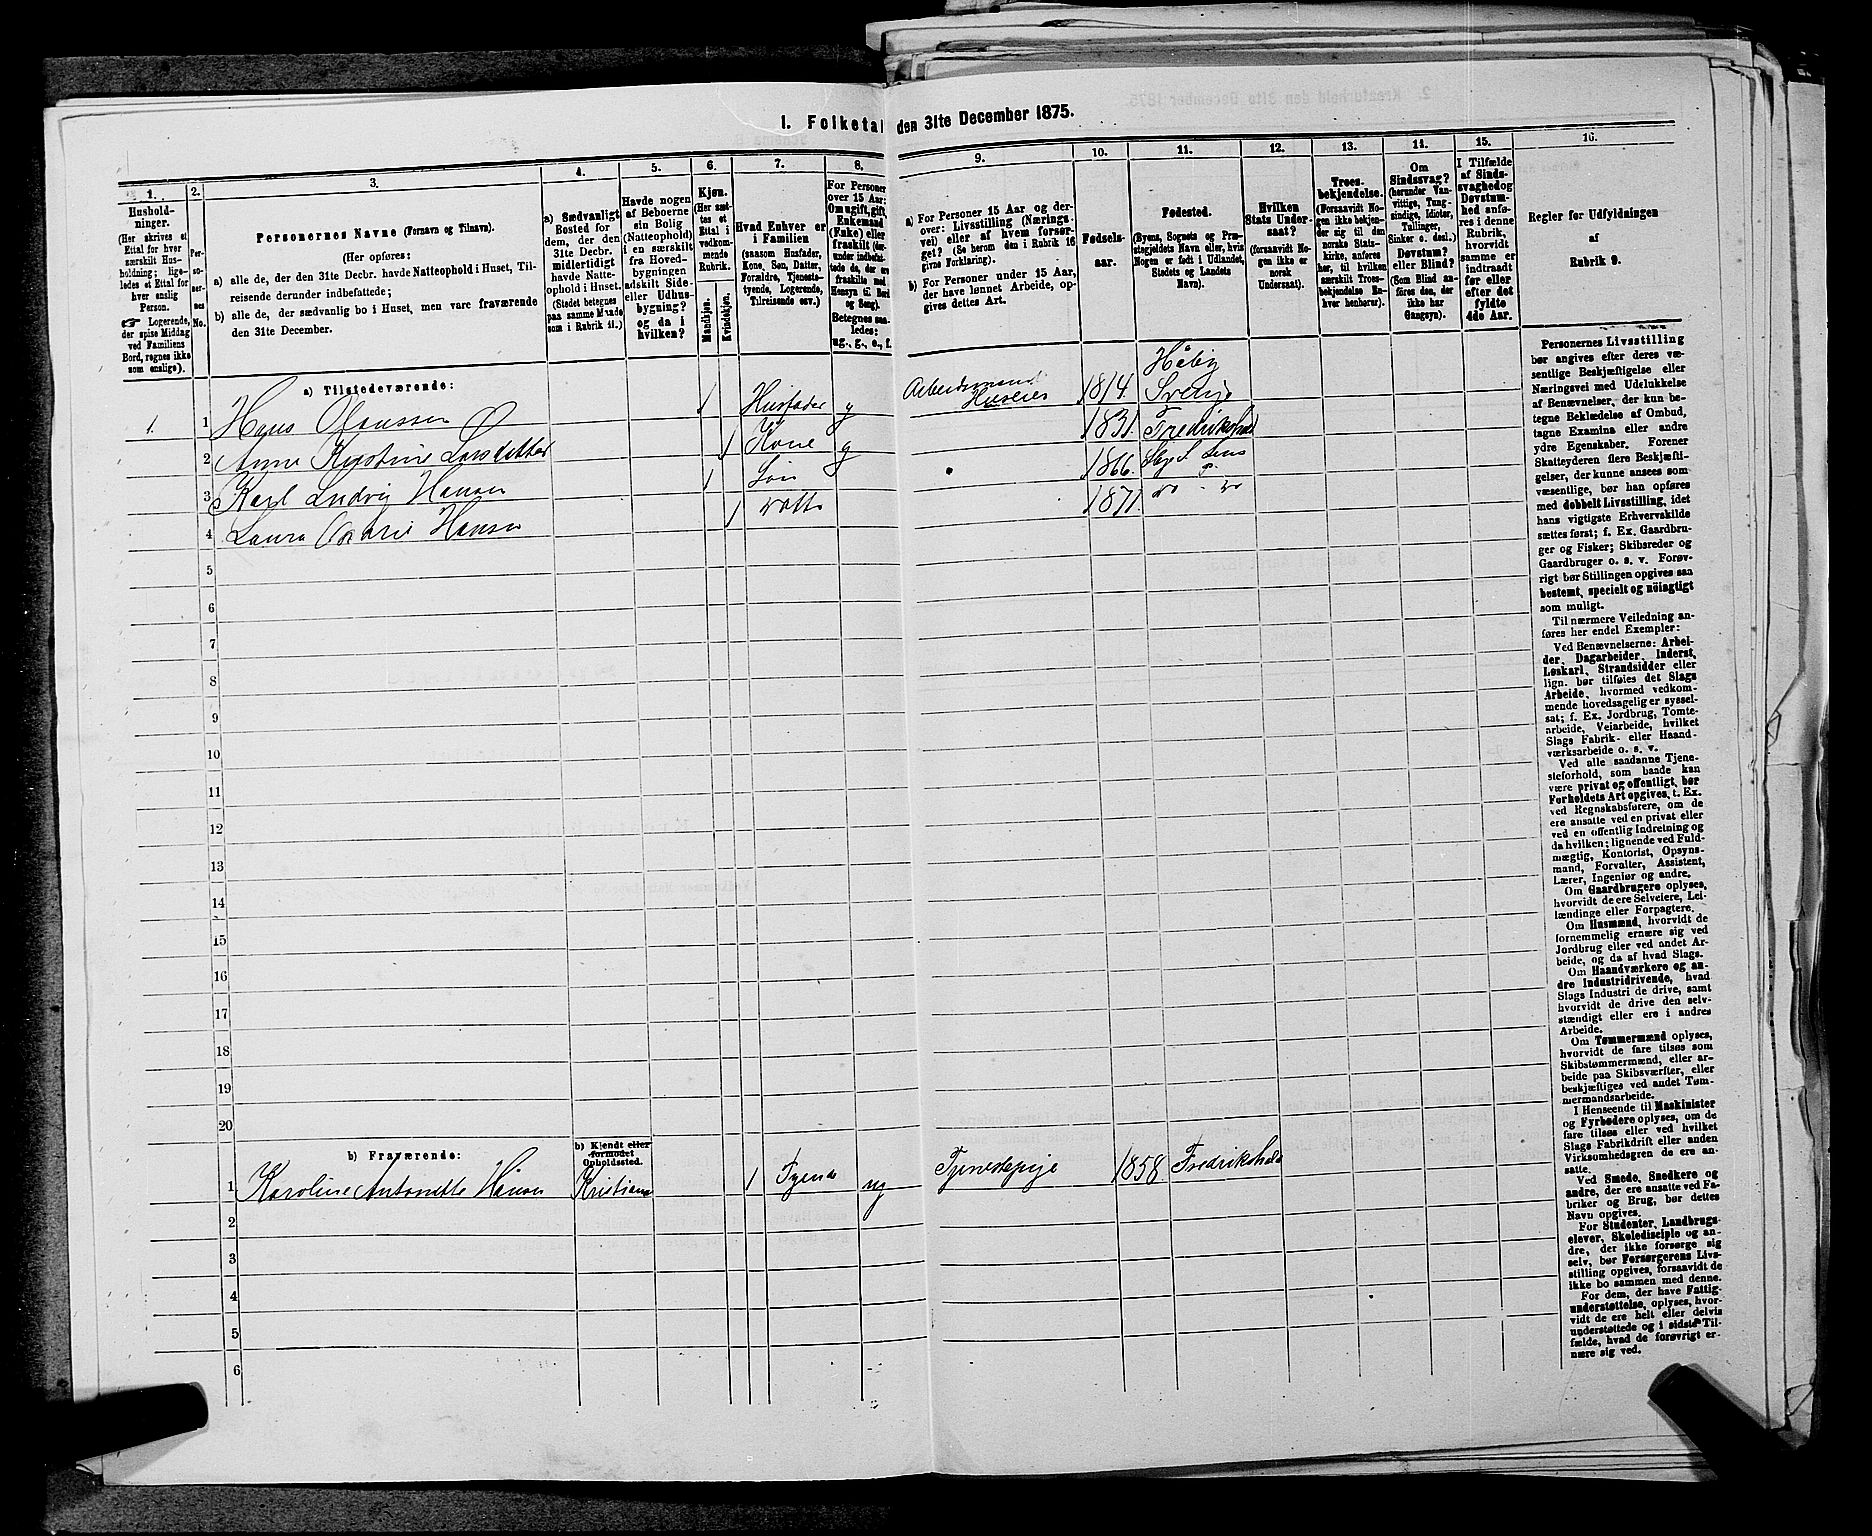 I. Folketal den 31te December 1875.
1.
Hushold-
ninger.
(Her skrives et
Ettal for hver
særskilt Hus-
holdning; lige-
ledes et Ettal for
hver enslig
Person.
☞ Logerende,
der spise Middag
ved Familiens
Bord, regnes ikke
som enslige).
2.
Per-
so-
ner-
nes
No.
3.
Personernes Navne (Fornavn og Tilnavn).
(Her opføres:
a) alle de, der den 31te Decbr. havde Natteophold i Huset, Til-
reisende derunder indbefattede;
b) alle de, der sædvanlig bo i Huset, men vare fraværende
den 31te December.
4.
a) Sædvanligt
Bosted for
dem, der den
31te Decbr.
midlertidigt
havde Natte-
ophold i Huset.
(Stedet betegnes
paa samme Maade
som i Rubrik 11.)
5.
Havde nogen
af Beboerne
sin Bolig
(Natteophold)
i en særskilt
fra Hoved-
bygningen
adskilt Side-
eller Udhus-
bygning?
og da i
hvilken?
6.
Kjøn.
(Her sæt-
tes et
Ettal i
vedkom-
mende
Rubrik.
Mandkjøn.
Kvindekjøn.
7.
Hvad Enhver er
i Familien
(saasom Husfader,
Kone, Søn, Datter,
Forældre, Tjeneste-
tyende, Logerende,
Tilreisende osv.)
8.
For Personer
over 15 Aar:
Om ugift, gift,
Enkemand
(Enke) eller
fraskilt (der-
under indbefat-
tede de, der ere
fraskilte med
Hensyn til Bord
og Seng).
Betegnes saa-
ledes:
ug., g., e., f.
9.
a) For Personer 15 Aar og der-
over: Livsstilling (Nærings-
vei) eller af hvem forsør-
get? (Se herom den i Rubrik 16
givne Forklaring).
b) For Personer under 15 Aar,
der have lønnet Arbeide, op-
gives dettes Art.
10.
Fødsels-
aar.
11.
Fødested.
(Byens, Sognets og Præ-
stegjeldets Navn eller, hvis
Nogen er født i Udlandet,
Stedets og Landets
Navn).
12.
Hvilken
Stats Under-
saat?
(forsaavidt No-
gen ikke er
norsk
Undersaat).
13.
Troes-
bekjendelse.
(Forsaavidt No-
gen ikke bekjen-
der sig til den
norske Stats-
kirke, anføres
her, til hvilken
særskilt Troes-
bekjendelse En-
hver henhører).
14.
Om
Sindssvag?
(herunder Van-
vittige, Tung-
sindige, Idioter,
Tullinger,
Sinker o. desl.)
Døvstum?
eller Blind?
(Som Blind an-
føres den, der
ikke har
Gangsyn).
15.
I Tilfælde
af Sinds-
svaghed og
Døvstum-
hed anfø-
res i denne
Rubrik,
hvorvidt
samme er
indtraadt
før eller
efter det
fyldte
4de Aar.
16.
Regler for Udfyldningen
af
Rubrik 9.
a) Tilstedeværende:
1. 1 Hans Olaussen 1 Husfader g Arbeidsmand Huseier 1814. Håby Sverige
2 Anne Kirstine Larsdatter 1 Kone g 1831. Fredrikshald
3 Karl Ludvig Hansen 1 Søn 1866.
4 Laura Marie Hansen 1 Datt. 1871. do - do
5
6
7
8
9
10
11
12
13
14
15
16
17
18
19
20
b) Fraværende:
b) Kjendt eller
formodet
Opholdssted.
1 Karoline Antonette Hansen Kristiania 1 Tyende ug Tjenestepige 1858. Fredrikshald
2
3
4
5
6
Personernes Livsstilling
bør angives efter deres væ-
sentlige Beskjæftigelse eller
Næringsvei med Udelukkelse
af Benævnelser, der kun be-
tegne Beklædelse af Ombud,
tagne Examina eller andre
ydre Egenskaber. Forener
Skatteyderen flere Beskjæfti-
gelser, der kunne ansees som
væsentlige, bør han opføres
med dobbelt Livsstilling, idet
hans vigtigste Erhvervskilde
sættes først; f. Ex. Gaardbru-
ger og Fisker; Skibsreder og
Gaardbruger o. s. v. Forøv-
rigt bør Stillingen opgives saa
bestemt, specielt og nøiagtigt
som muligt.
Til nærmere Veiledning an-
føres her endel Exempler:
Ved Benævnelserne: Arbei-
der, Dagarbeider, Inderst,
Løskarl, Strandsidder eller
lign. bør tilføies det Slags
Arbeide, hvormed vedkom-
mende hovedsagelig er syssel-
sat; f. Ex. Jordbrug, Tomte-
arbeide, Veiarbeide, hvilket
Slags Fabrik- eller Haand-
værksarbeide o. s. v.
Ved alle saadanne Tjene-
steforhold, som baade kan
være privat og offentligt, bør
Forholdets Art opgives, t. Ex.
ved Regnskabsførere, om de
ere ansatte ved en privat eller
ved en offentlig Indretning og
da hvilken; lignende ved Fuld-
mægtig, Kontorist, Opsyns-
mand, Forvalter, Assistent,
Lærer, Ingeniør og andre.
Om Gaardbrugere oplyses,
hvorvidt de ere Selveiere, Lei-
lændinge eller Forpagtere.
Om Husmænd, hvorvidt de
fornemmelig ernære sig ved
Jordbrug eller ved andet Ar-
beide, og da af hvad Slags.
Om Haandværkere og an-
dre Industridrivende, hvad
Slags Industri de drive, samt
hvorvidt de drive den selv-
stændigt eller ere i andres
Arbeide.
Om Tømmermænd oplyses,
hvorvidt de fare tilsøs som
Skibstømmermænd, eller ar-
beide paa Skibsværfter, eller
beskjæftiges ved andet Tøm-
mermandsarbeide.
I Henseende til Maskinister
og Fyrbødere oplyses, om de
fare tilsøs eller ved hvilket
Slags Fabrikdrift eller anden
Virksomhedsgren de ere an-
satte.
Ved Smede, Snedkere og
andre, der ere ansatte ved Fa-
briker og Brug, bør dettes
Navn opgives.
For Studenter, Landbrugs-
elever, Skoledisciple og an-
dre, der ikke forsørge sig
selv, bør Forsørgerens Livs-
stilling opgives, forsaavidt de
ikke bo sammen med denne.
For dem, der have Fattig-
understøttelse, oplyses, hvor-
vidt de ere helt eller delvis
understøttede og i sidste Til-
fælde, hvad de forøvrigt er-
nære sig ved.